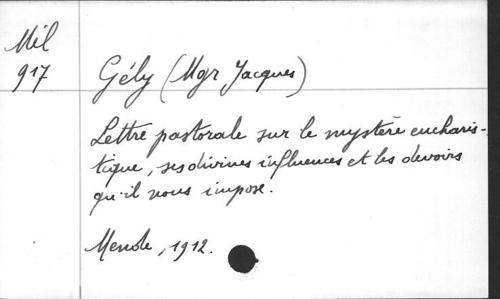 Mil
917
Gély (Mgr Jacques)
Lettre pastorale sur le mystère eucharis-
tique, ses divines influences et les devoirs
qu'il nous impose.
Mende, 1912.